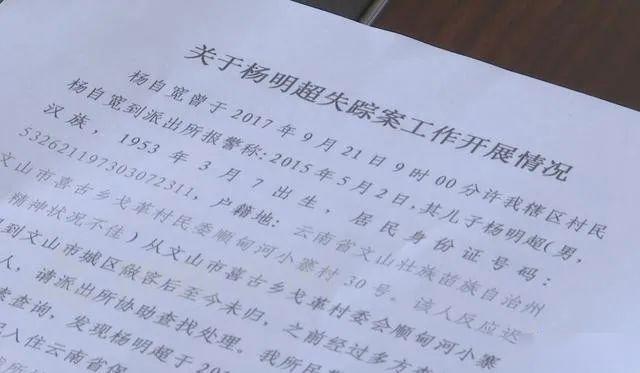 关于杨明超失踪案工作开展情况
杨自宽曾于2017年9月21日9时00分许我辖区村民
杨自宽到派出所报警称:2015年5月2日,其儿子杨明超(男,
汉族,1953年3月7出生,居民身份证号码:
532621197303072311,户籍地:云南省文山壮族苗族自治州
文山市喜古乡戈革村民委顺甸河小寨村30号。该人反应迟
精神状况不佳)从文山市喜古乡戈革村委会顺甸河小寨
到文山市城区做客后至今未归,之前经过多方
人,请派出所协助查找处理。我所民
查询,发现杨明超于20
入住云南省保